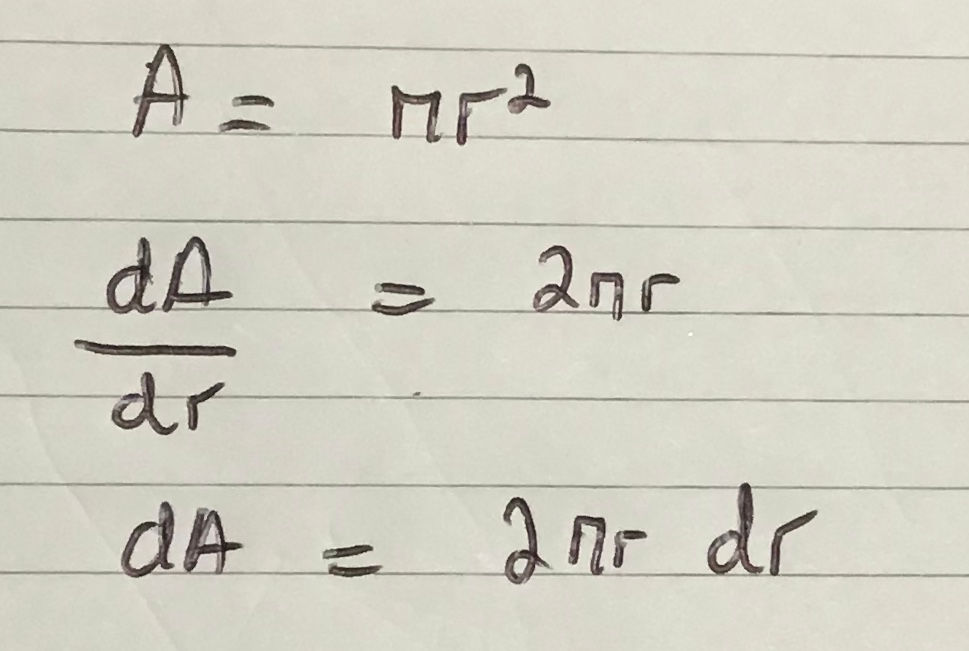 A = πr²
dA/dr = 2πr
dA = 2πr dr